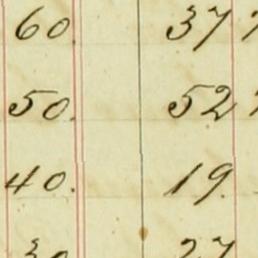 60. 37
50. 52
40. 19.
30 27